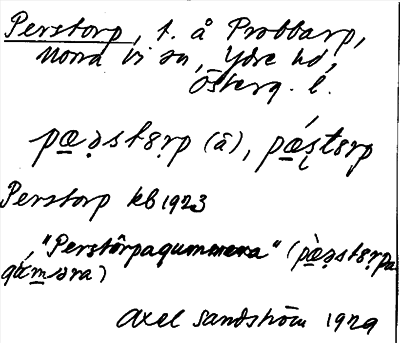 Perstorp, t. å Probbarp,
Norra Vi sn, Ydre hd,
Österg. l.
pæ̱əstɤrp (ā), pǽ̱ʂtɤrp
Perstorp kb 1923
"Perstôrpagummera" (pæ̱̀əstɤrpa
gúm̱əra)
Axel Sandström 1929